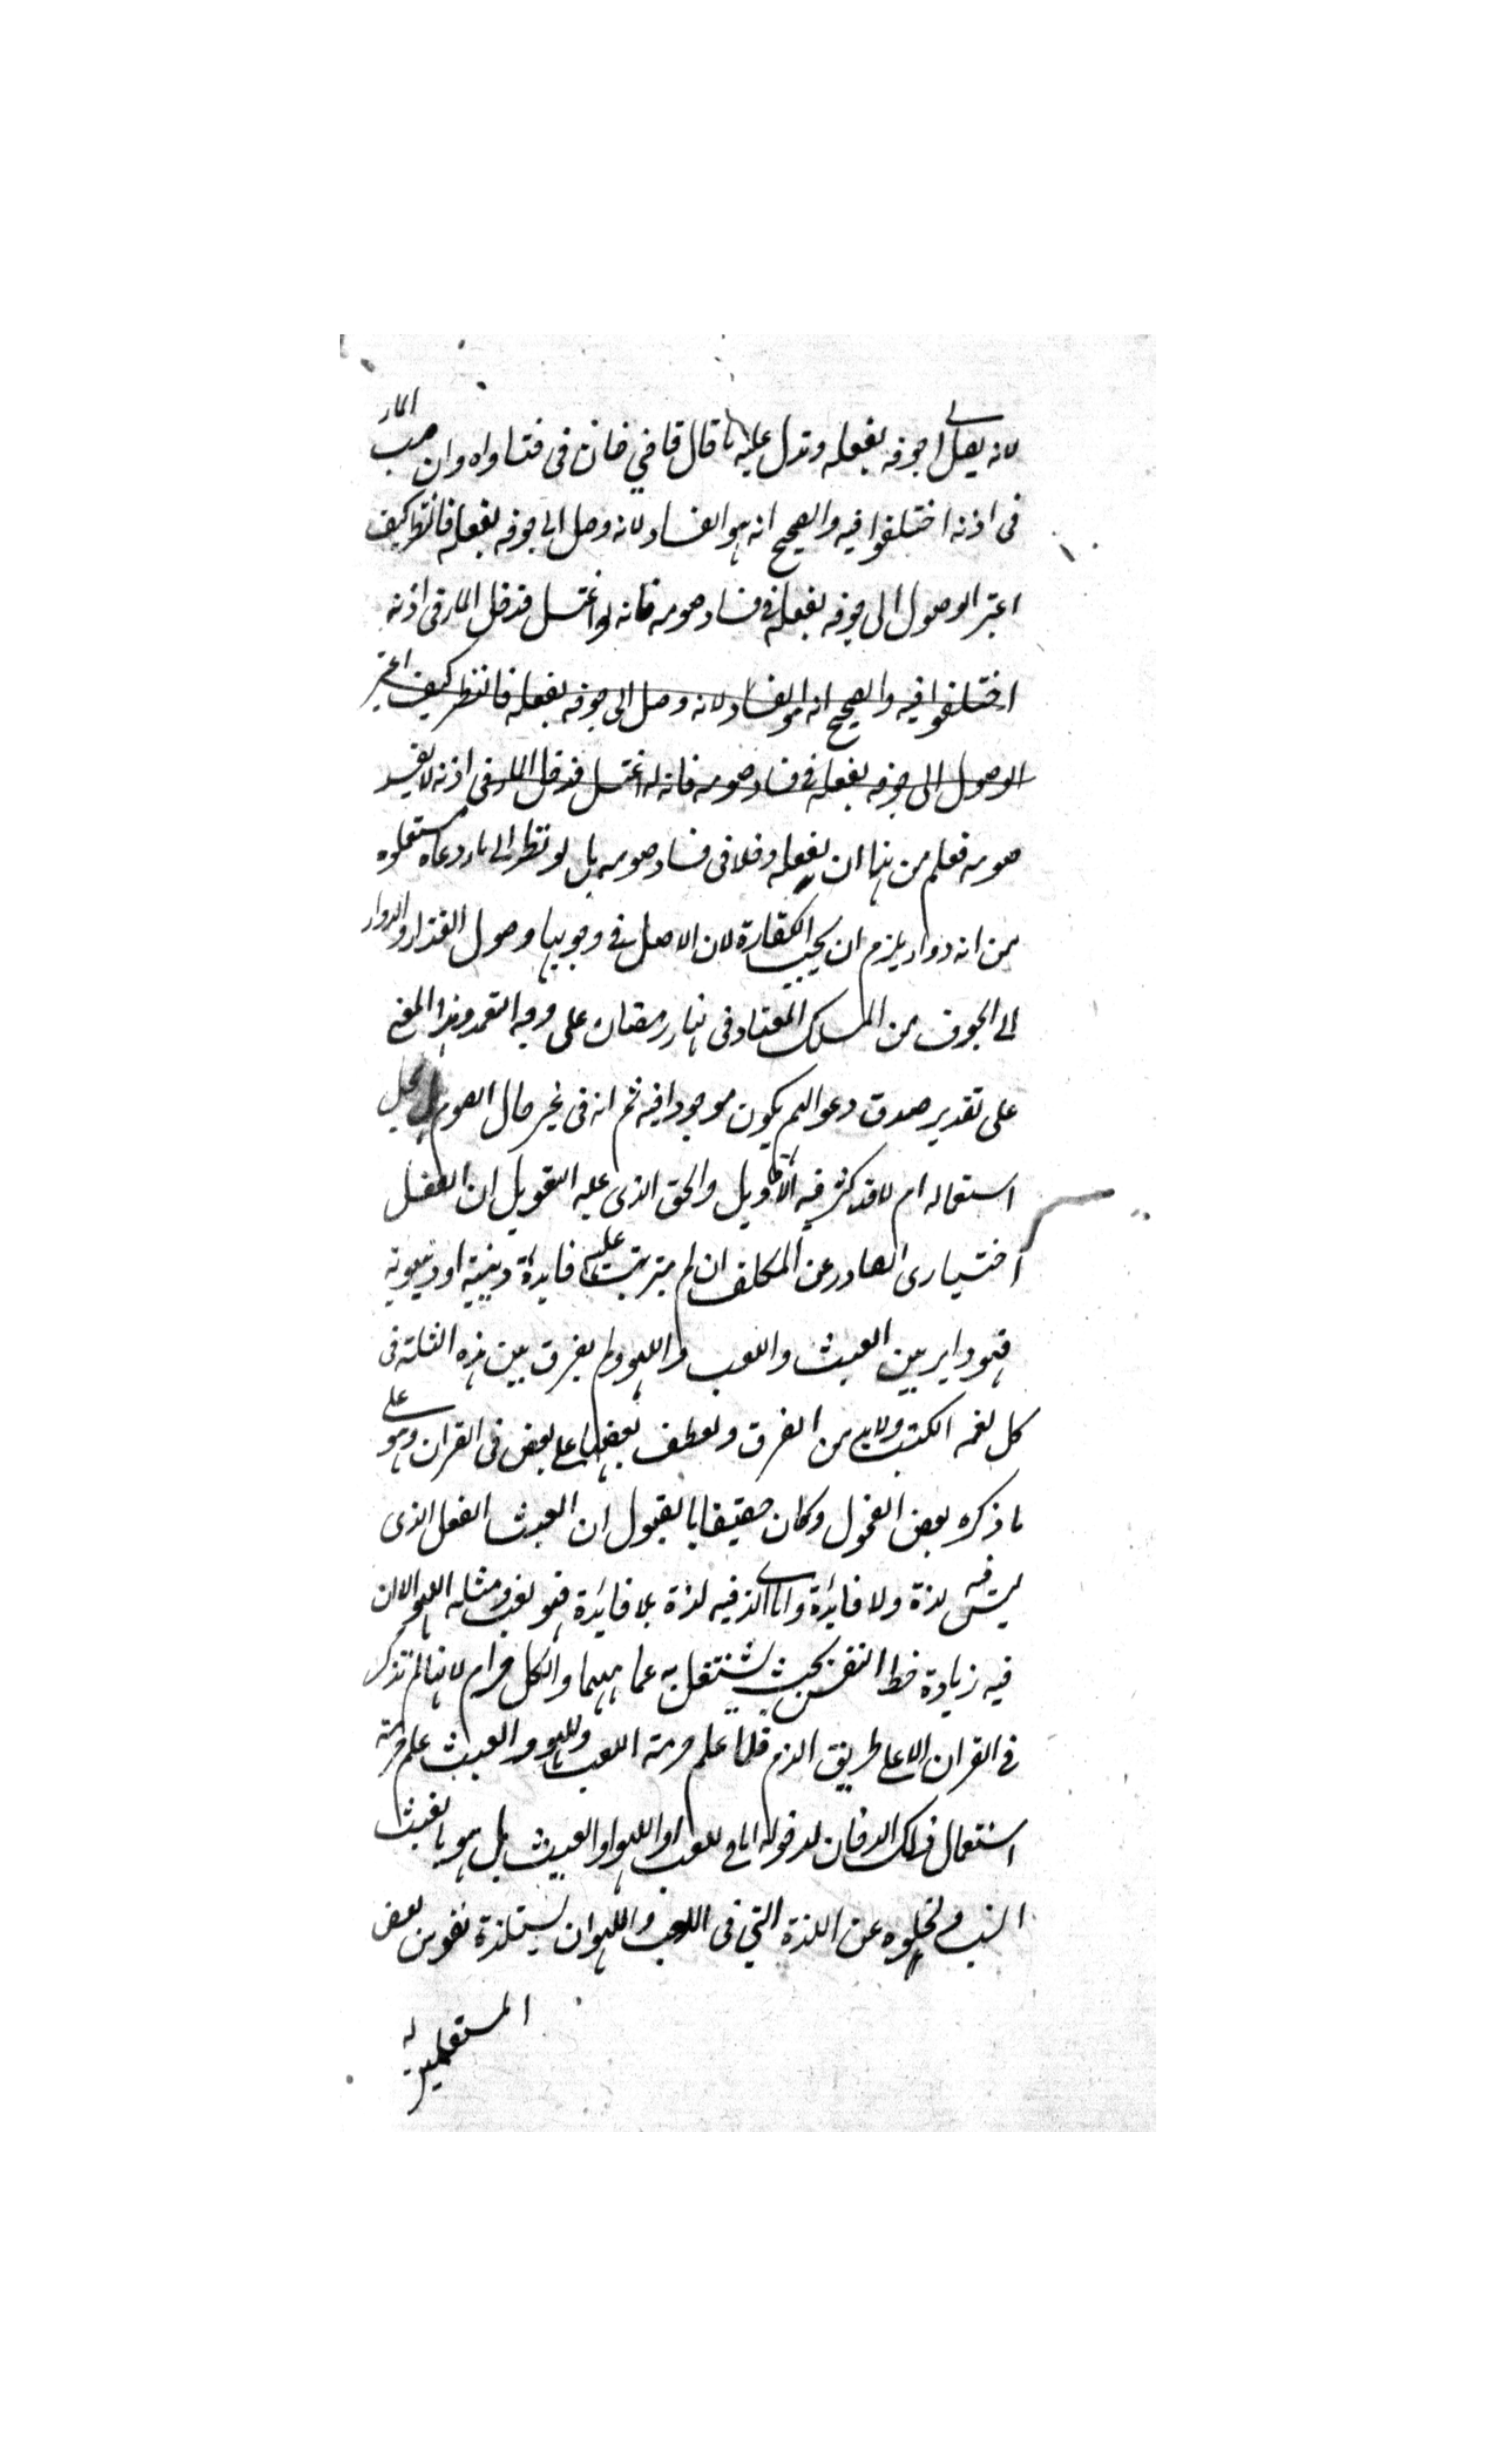 لانه يصل الى جوفه بفعله وتدل عليه ما قال قاضي خان فى فتاواه وان صب الماء
فى اذنه اختلفوا فيه والصحيح انه هو الفساد لانه وصل الى جوفه بفعله فانظر كيف
اعتبر الوصول الى جوفه بفعله فى فساد صومه فانه لو اغتسل فدخل الماء فى اذنه
اختلفوا فيه والصحيح انه هو الفساد لانه وصل الى جوفه بفعله فانظر كيف اعتبر
الوصول الى جوفه بفعله فى فساد صومه فانه لو اغتسل فدخل الماء فى اذنه لا يفسد
صومه فعلم من هنا ان بفعله دخلا فى فساد صومه بل لو نظر الى ما ادعاه مستعملوه
من انه دواء يلزم ان يجب الكفارة لان الاصل فى وجوبها وصول الغذاء والدواء
الى الجوف من المسلك المعتاد فى نهار رمضان على وجه التعمد وهذا المعنى
على تقدير صدق دعواهم يكون موجودا فيه ثم انه فى غير حال الصوم هل يحل
استعماله ام لا قد كثر فيه الاقاويل والحق الذى عليه التعويل ان الفعل
اختيارى الصادر عن المكلف ان لم يترتب عليه فايدة دينية او دنيوية
فهو داير بين العبث واللعب واللهو ولم يفرق بين هذه الثلثة فى
كل لغة الكتب ولابد من الفرق ولعطف بعضها على بعض فى القران وهو على
ما ذكره بعض الفحول وكان حقيقا بالقبول ان العبث الفعل الذى
ليس فيه لذة ولا فائدة واما الذى فيه لذة بلا فائدة فهو لعب ومثله اللهو الا ان
فيه زيادة حظ النفس بحيث يشتغل به عما يهمها والكل حرام لانها لم تذكر
فى القران الا على طريق الذم فلما علم حرمة اللعب واللهو والعبث علم حرمة
استعمال ذلك الدخان لدخوله اما فى اللعب او اللهو او العبث بل هو بالعبث
انسب لخلوه عن اللذة التى فى اللعب واللهو ان يستلذه نفوس بعض
المستعملين له